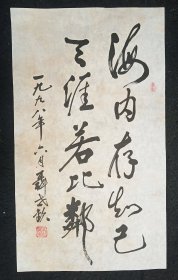 海内存知己
天涯若比邻
一九九八年六月